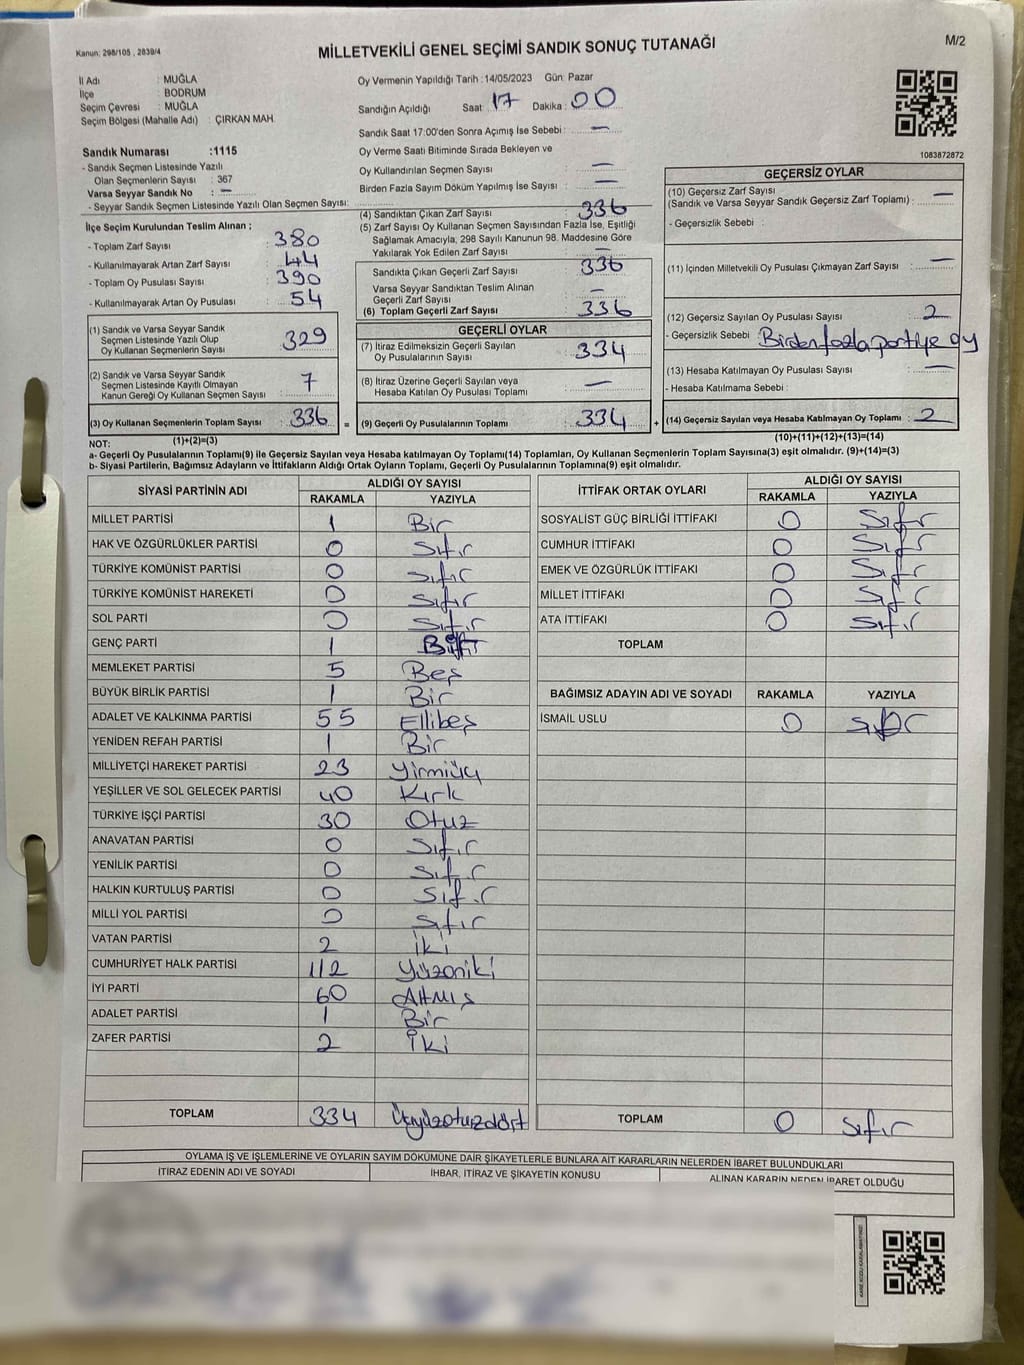 Kanun: 298/105 , 2839/4
MİLLETVEKİLİ GENEL SEÇİMİ SANDIK SONUÇ TUTANAĞI
M/2
İl Adı : MUĞLA
İlçe : BODRUM
Seçim Çevresi : MUĞLA
Seçim Bölgesi (Mahalle Adı) : ÇIRKAN MAH.
Oy Vermenin Yapıldığı Tarih : 14/05/2023 Gün: Pazar
Sandığın Açıldığı Saat : 17 Dakika : 00
Sandık Saat 17:00'den Sonra Açımış İse Sebebi : —
Oy Verme Saati Bitiminde Sırada Bekleyen ve
Oy Kullandırılan Seçmen Sayısı : —
Birden Fazla Sayım Döküm Yapılmış İse Sayısı : —
1083872872
Sandık Numarası :1115
- Sandık Seçmen Listesinde Yazılı
Olan Seçmenlerin Sayısı : 367
Varsa Seyyar Sandık No : —
- Seyyar Sandık Seçmen Listesinde Yazılı Olan Seçmen Sayısı:
İlçe Seçim Kurulundan Teslim Alınan ;
- Toplam Zarf Sayısı : 380
- Kullanılmayarak Artan Zarf Sayısı : 44
- Toplam Oy Pusulası Sayısı : 390
- Kullanılmayarak Artan Oy Pusulası : 54
(1) Sandık ve Varsa Seyyar Sandık
Seçmen Listesinde Yazılı Olup
Oy Kullanan Seçmenlerin Sayısı : 329
(2) Sandık ve Varsa Seyyar Sandık
Seçmen Listesinde Kayıtlı Olmayan
Kanun Gereği Oy Kullanan Seçmen Sayısı : 7
(3) Oy Kullanan Seçmenlerin Toplam Sayısı : 336 =
(4) Sandıktan Çıkan Zarf Sayısı : 336
(5) Zarf Sayısı Oy Kullanan Seçmen Sayısından Fazla İse, Eşitliği
Sağlamak Amacıyla, 298 Sayılı Kanunun 98. Maddesine Göre
Yakılarak Yok Edilen Zarf Sayısı : —
Sandıkta Çıkan Geçerli Zarf Sayısı : 336
Varsa Seyyar Sandıktan Teslim Alınan
Geçerli Zarf Sayısı : —
(6) Toplam Geçerli Zarf Sayısı : 336
GEÇERLİ OYLAR
(7) İtiraz Edilmeksizin Geçerli Sayılan
Oy Pusulalarının Sayısı : 334
(8) İtiraz Üzerine Geçerli Sayılan veya
Hesaba Katılan Oy Pusulası Toplamı : —
(9) Geçerli Oy Pusulalarının Toplamı : 334 +
GEÇERSİZ OYLAR
(10) Geçersiz Zarf Sayısı
(Sandık ve Varsa Seyyar Sandık Geçersiz Zarf Toplamı) : —
- Geçersizlik Sebebi :
(11) İçinden Milletvekili Oy Pusulası Çıkmayan Zarf Sayısı : —
(12) Geçersiz Sayılan Oy Pusulası Sayısı : 2
- Geçersizlik Sebebi : Birden fazla partiye oy
(13) Hesaba Katılmayan Oy Pusulası Sayısı : —
- Hesaba Katılmama Sebebi :
(14) Geçersiz Sayılan veya Hesaba Katılmayan Oy Toplamı : 2
NOT: (1)+(2)=(3) (10)+(11)+(12)+(13)=(14)
a- Geçerli Oy Pusulalarının Toplamı(9) ile Geçersiz Sayılan veya Hesaba katılmayan Oy Toplamı(14) Toplamları, Oy Kullanan Seçmenlerin Toplam Sayısına(3) eşit olmalıdır. (9)+(14)=(3)
b- Siyasi Partilerin, Bağımsız Adayların ve İttifakların Aldığı Ortak Oyların Toplamı, Geçerli Oy Pusulalarının Toplamına(9) eşit olmalıdır.
SİYASİ PARTİNİN ADI ALDIĞI OY SAYISI
RAKAMLA YAZIYLA
MİLLET PARTİSİ 1 Bir
HAK VE ÖZGÜRLÜKLER PARTİSİ 0 Sıfır
TÜRKİYE KOMÜNİST PARTİSİ 0 Sıfır
TÜRKİYE KOMÜNİST HAREKETİ 0 Sıfır
SOL PARTİ 0 Sıfır
GENÇ PARTİ 1 Bir
MEMLEKET PARTİSİ 5 Beş
BÜYÜK BİRLİK PARTİSİ 1 Bir
ADALET VE KALKINMA PARTİSİ 55 Ellibeş
YENİDEN REFAH PARTİSİ 1 Bir
MİLLİYETÇİ HAREKET PARTİSİ 23 Yirmiüç
YEŞİLLER VE SOL GELECEK PARTİSİ 40 Kırk
TÜRKİYE İŞÇİ PARTİSİ 30 Otuz
ANAVATAN PARTİSİ 0 Sıfır
YENİLİK PARTİSİ 0 Sıfır
HALKIN KURTULUŞ PARTİSİ 0 Sıfır
MİLLİ YOL PARTİSİ 0 Sıfır
VATAN PARTİSİ 2 İki
CUMHURİYET HALK PARTİSİ 112 Yüzoniki
İYİ PARTİ 60 Altmış
ADALET PARTİSİ 1 Bir
ZAFER PARTİSİ 2 İki
TOPLAM 334 Üçyüzotuzdört
İTTİFAK ORTAK OYLARI ALDIĞI OY SAYISI
RAKAMLA YAZIYLA
SOSYALİST GÜÇ BİRLİĞİ İTTİFAKI 0 Sıfır
CUMHUR İTTİFAKI 0 Sıfır
EMEK VE ÖZGÜRLÜK İTTİFAKI 0 Sıfır
MİLLET İTTİFAKI 0 Sıfır
ATA İTTİFAKI 0 Sıfır
TOPLAM
BAĞIMSIZ ADAYIN ADI VE SOYADI RAKAMLA YAZIYLA
İSMAİL USLU 0 Sıfır
TOPLAM 0 Sıfır
OYLAMA İŞ VE İŞLEMLERİNE VE OYLARIN SAYIM DÖKÜMÜNE DAİR ŞİKAYETLERLE BUNLARA AİT KARARLARIN NELERDEN İBARET BULUNDUKLARI
İTİRAZ EDENİN ADI VE SOYADI İHBAR, İTİRAZ VE ŞİKAYETİN KONUSU ALINAN KARARIN NEDEN İBARET OLDUĞU